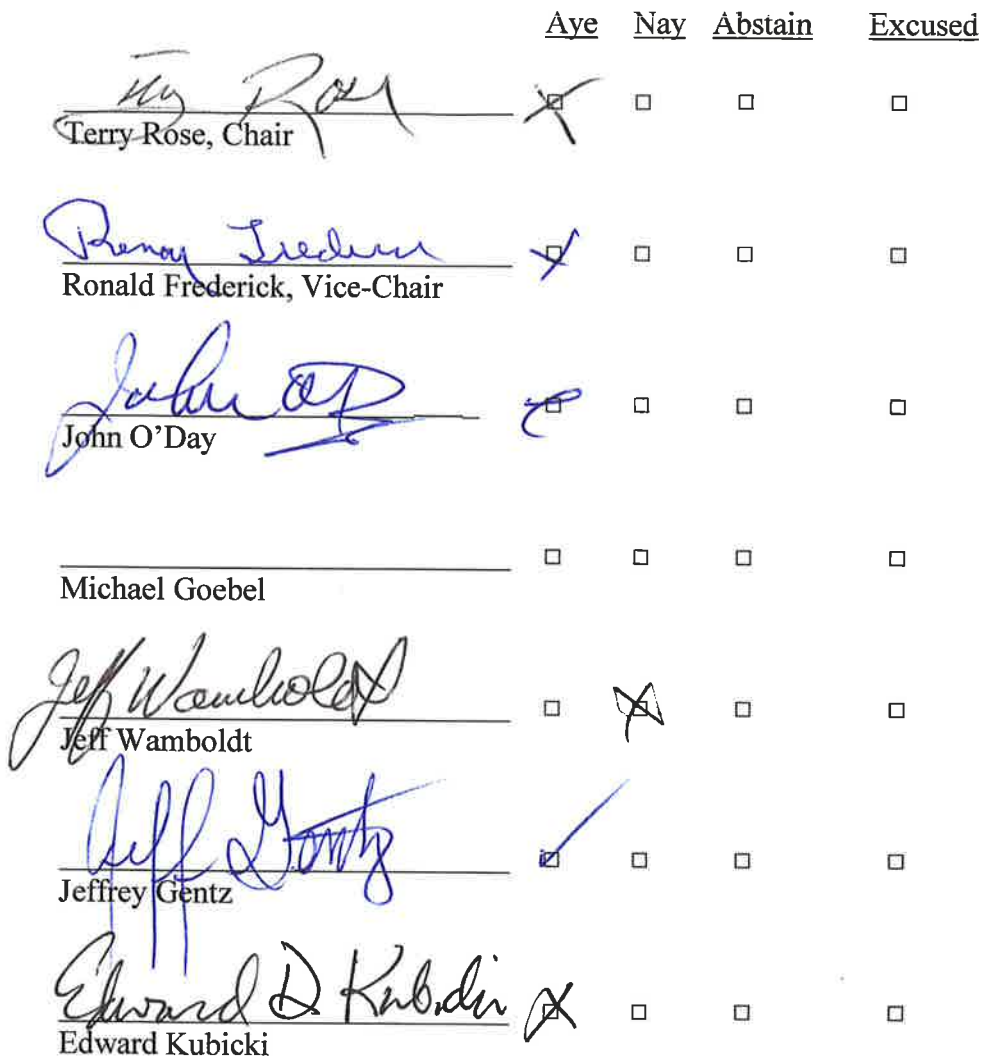 Aye Nay Abstain Excused
Rose
Terry Rose, Chair
Ronald Frederick, Vice-Chair
John
John O'Day
Michael Goebel
Jeff Wamboldt
Jeff Wamboldt
Jeff Gentz
Jeffrey Gentz
Edward D. Kubicki
Edward Kubicki